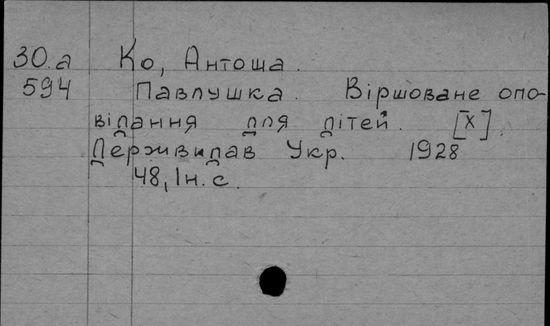 30.а Ко, Антоша.
594 Павлушка. Віршоване опо-
відання для дітей. [X].
Держвидав Укр. 1928
48, 1н. с.